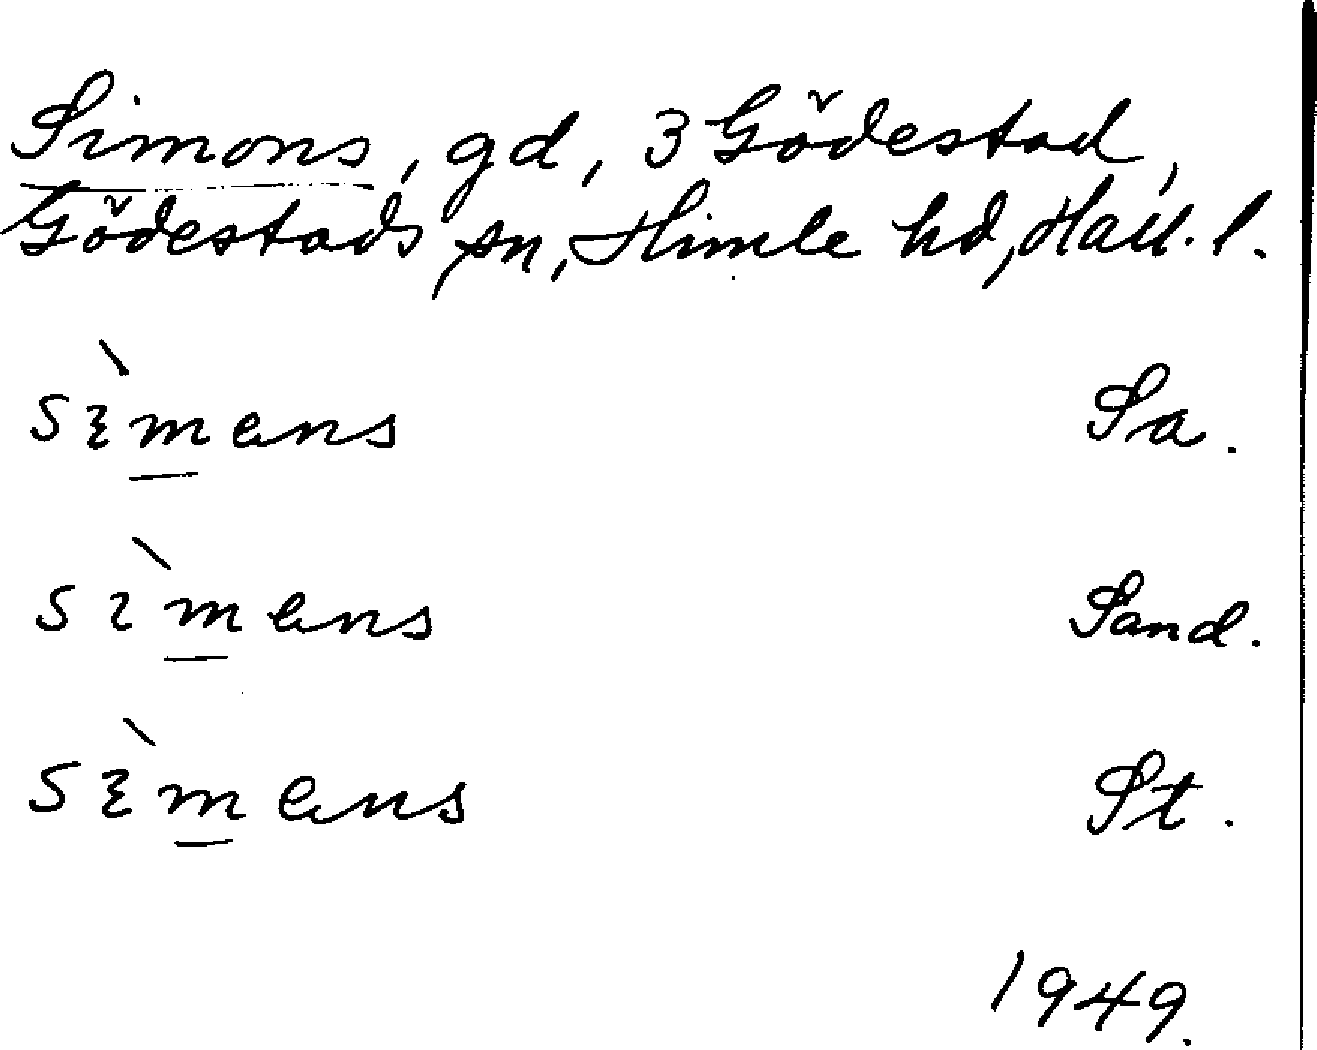 Simons, gd, 3 Gödestad,
Gödestads sn, Himle hd, Hall. l.
sìmans Sa.
sìmans Sand.
sìmans St.
1949.